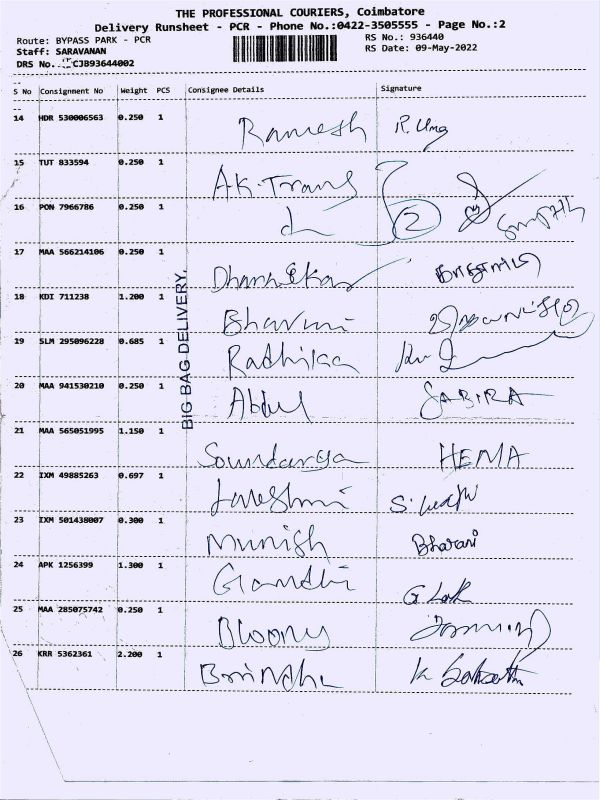 THE PROFESSIONAL COURIERS, Coimbatore
Delivery Runsheet - PCR - Phone No.:0422-3505555 - Page No.:2
Route: BYPASS PARK - PCR
RS No.: 936440
Staff: SARAVANAN
RS Date: 09-May-2022
DRS No. CJB93644002
S No Consignment No Weight PCS Consignee Details Signature
14 HDR 530006563 0.250 1 Ramesh R. Uma
15 TUT 833594 0.250 1 AK. Trans
16 PON 7966786 0.250 1 2
17 MAA 566214106 0.250 1 Dhanasekar
18 KDI 711238 1.200 1 Bhavani
19 SLM 295096228 0.685 1 Radhika
20 MAA 941530210 0.250 1 Abdul SABIRA
21 MAA 565051995 1.150 1 Soundarya HEMA
22 IXM 49885263 0.697 1
23 IXM 501438007 0.300 1 Munish Bharani
24 APK 1256399 1.300 1 Gandhi
25 MAA 285075742 0.250 1
26 KRR 5362361 2.200 1 Brindha
BIG BAG DELIVERY.